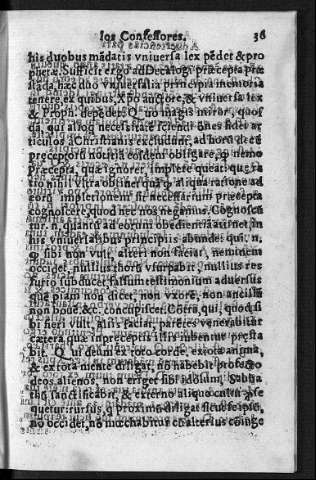 los Confessores. 36
his duobus mãdatis vniuersa lex pẽdet & pro
phetæ. Sufficit ergo ad Decalogi præcepta præ
stãda, hæc duo vniuersalia principia memoria
tenere, ex quibus, Xpo auctore, & vniuersa lex
& Prophe. depẽdet. Quo magis miror, quosdã
da, qui a iog necessitate sciendi ones fidei ar
ticulos à Christianis excludunt, ad horũ decẽ
præceptorũ notitiã eosdem obligare, q nemo
præcepta, quæ ignorer, implere queat: quę ra
tio nihil vltra obtinet quã q aliqua ratione ad
eorũ impletionem sit necessarium præcepta
cognoscere, quod nec nos negamus. Cognoscũ
tur. n. quantũ ad eorum obedientiã attinet, in
his vniuersalibus principiis abunde: qui. n.
q sibi non vult, alteri non faciat, neminem
occidet, nullius thorũ vsurpabit, nullius res
furto subducet, falsum testimonium aduersus
quẽpiam non dicet, non vxorẽ, non ancillã
non bouẽ &c. concupiscet. Cõtra, qui, quod si
bi fieri vult, aliis faciat, parẽtes venerabitur
cætera, quæ in præceptis illis iubentur præsta
bit. Qui deum ex toto corde, ex tota anima,
& ex tota mente diligat, nõ habebit profecto
deos alienos, non eriget sibi idolum, Sabba
thũ sanctificabit, & externo aliquo cultu pse
quetur: rursus, q proximũ diligat sicut se ipsũ,
nõ occidet, nõ mœchabitur cũ alterius coniuge